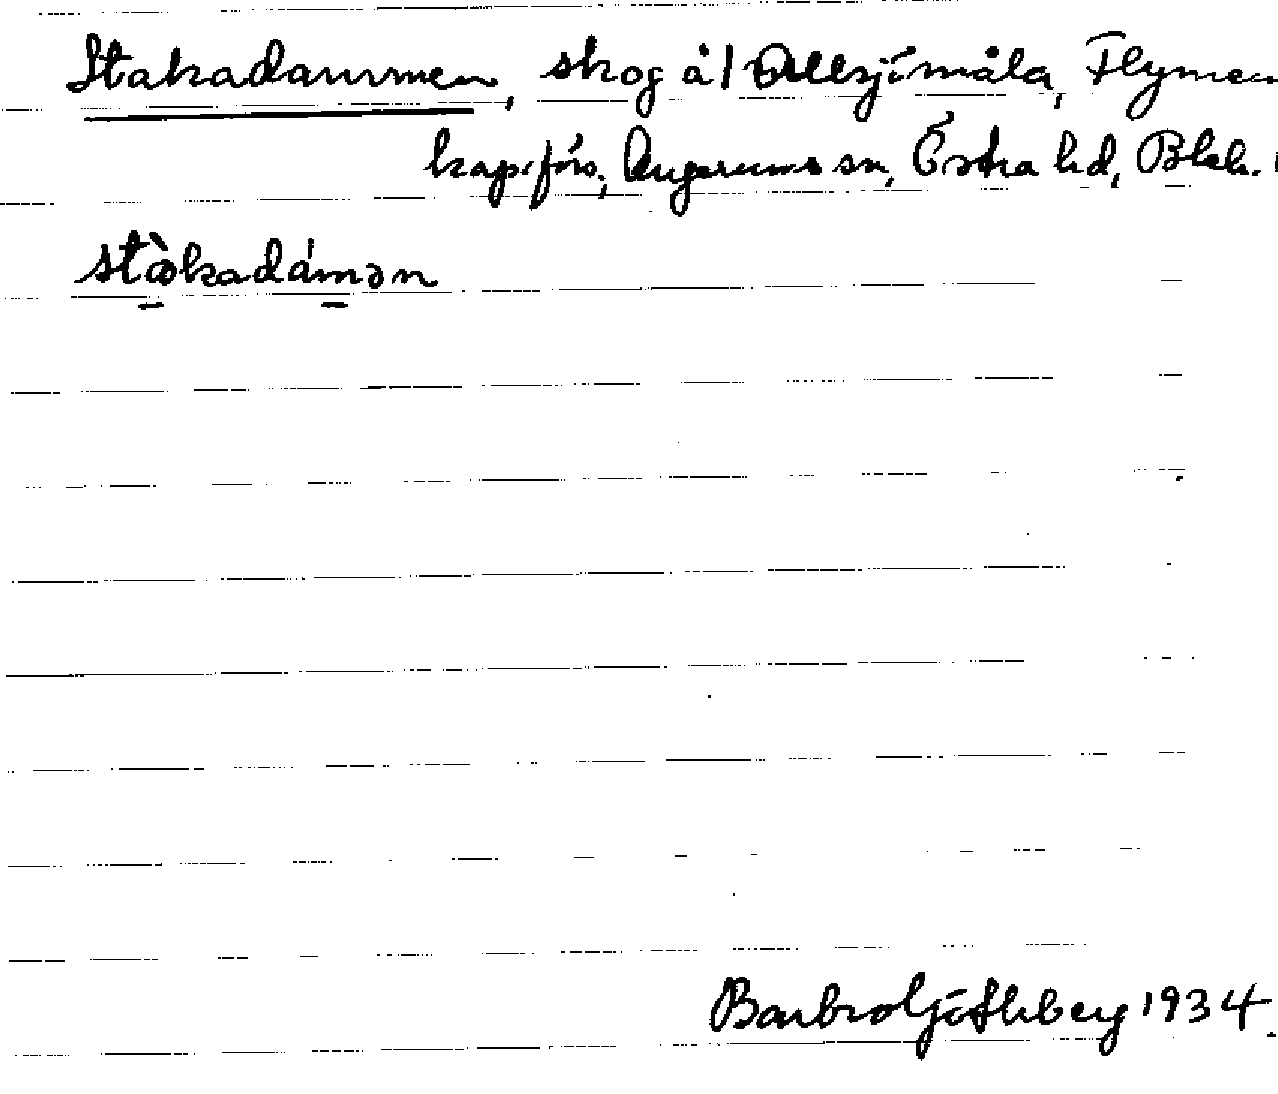 Stakadammen, skog å Allsjömåla, Flymen
kap.förs., Augerums sn, Östra hd, Blek.
stàkadámən
Barbro 1934.